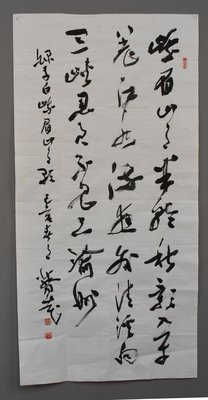 峨眉山月半輪秋影入平
羌江水流夜發清溪向
三峽思君不見下渝州
錄李白峨眉山月歌 春月